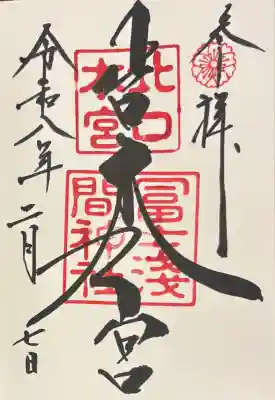 奉拝
北口
本宮
冨士浅
間神社
宮
令和八年二月七日